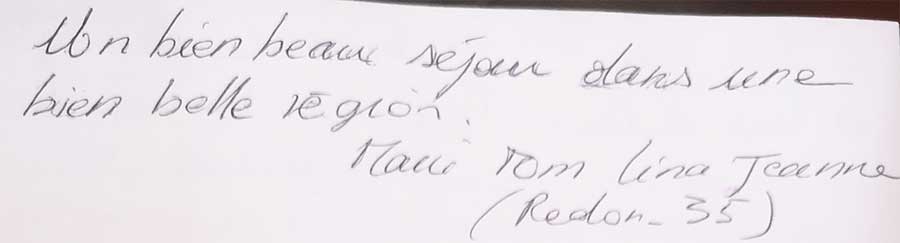 Un bien beau séjour dans une
bien belle région.
Tom Lina Jeanne
(Redon_35)